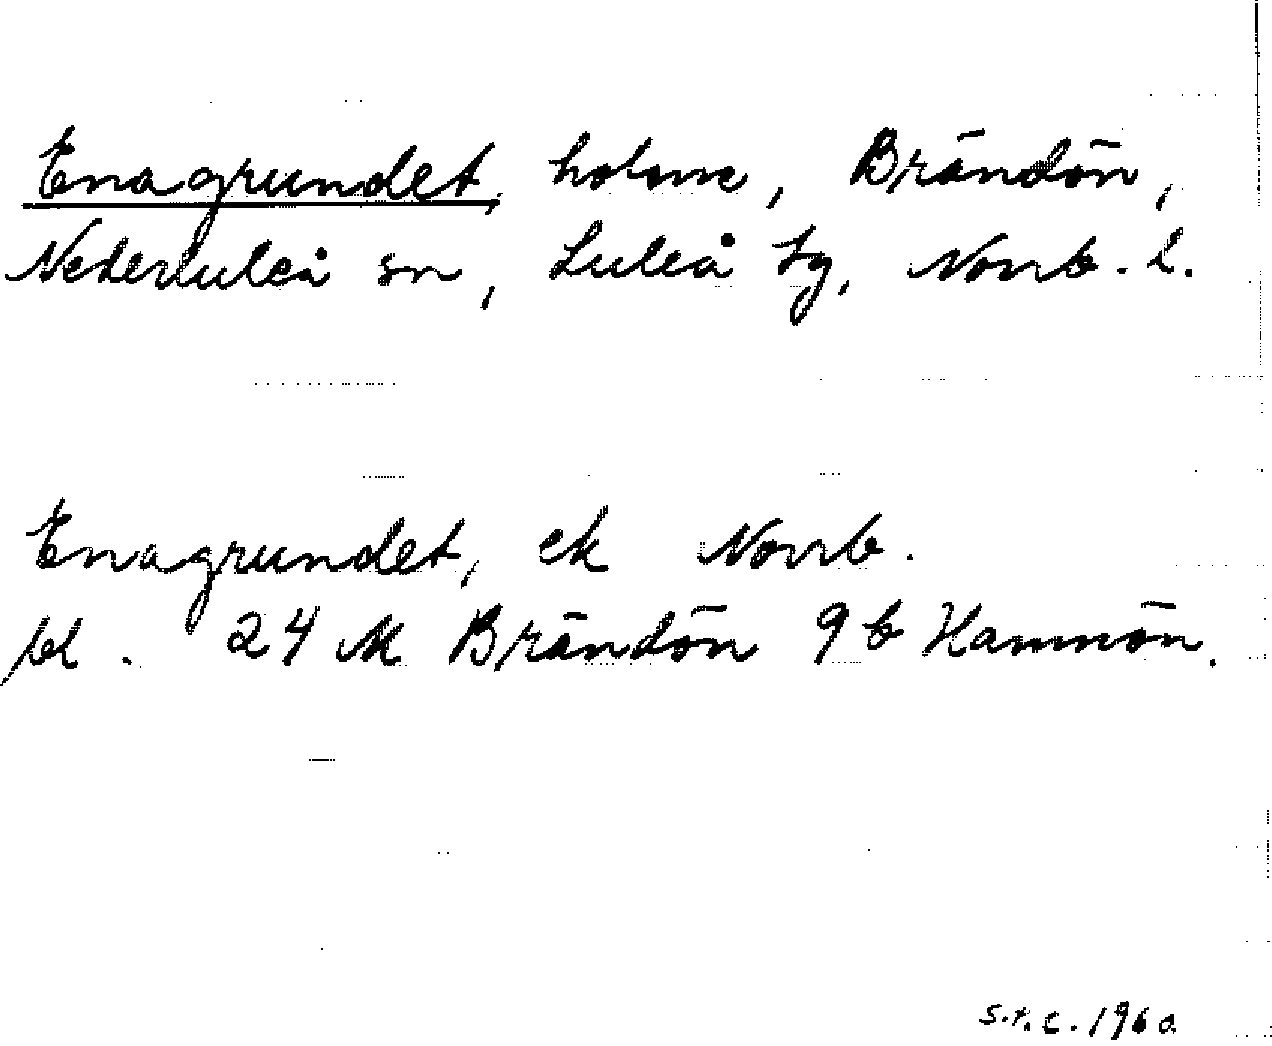 Enagrundet, holme, Brändön,
Nederluleå sn, Luleå tg, Norrb. l.
Enagrundet, ek Norrb.
bl. 24 M Brändön 9 b Hamnön.
1960